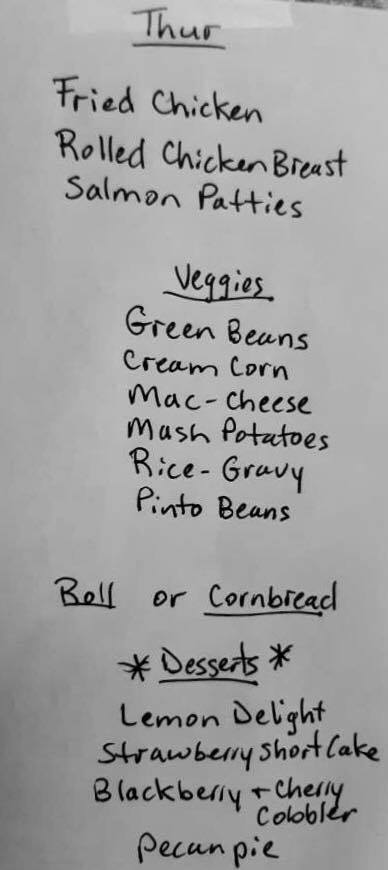 Thur
Fried Chicken
Rolled Chicken Breast
Salmon Patties
Veggies
Green Beans
Cream Corn
Mac-cheese
Mush Potatoes
Rice-Gravy
Pinto Beans
Roll or Cornbread
* Desserts *
Lemon Delight
Strawberry Short Cake
Blackberry + Cherry
Cobbler
Pecan pie